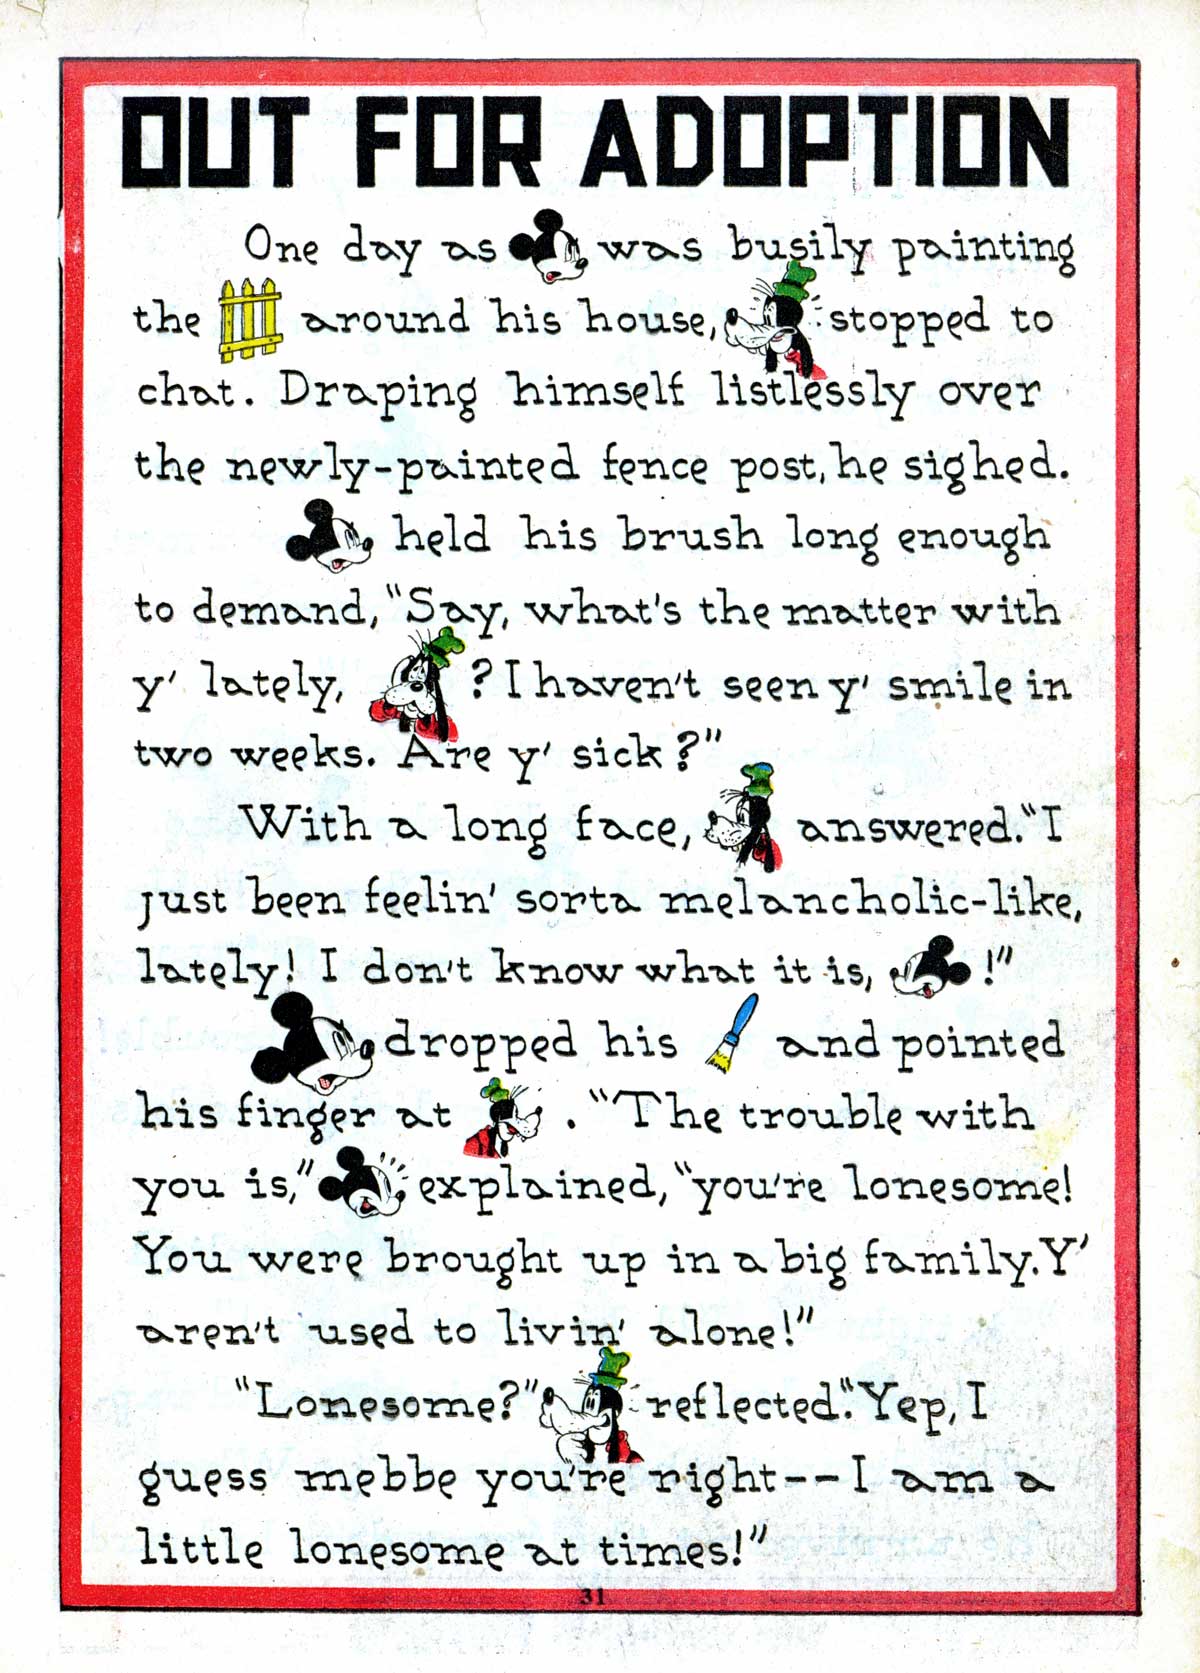 OUT FOR ADOPTION
One day as was busily painting
the around his house, stopped to
chat. Draping himself listlessly over
the newly-painted fence post, he sighed.
held his brush long enough
to demand, "Say, what's the matter with
y' lately, ? I haven't seen y' smile in
two weeks. Are y' sick?"
With a long face, answered. "I
just been feelin' sorta melancholic-like,
lately! I don't know what it is, !"
dropped his and pointed
his finger at . "The trouble with
you is," explained, "you're lonesome!
You were brought up in a big family. Y'
aren't used to livin' alone!"
"Lonesome?" reflected. "Yep, I
guess mebbe you're right--I am a
little lonesome at times!"
31